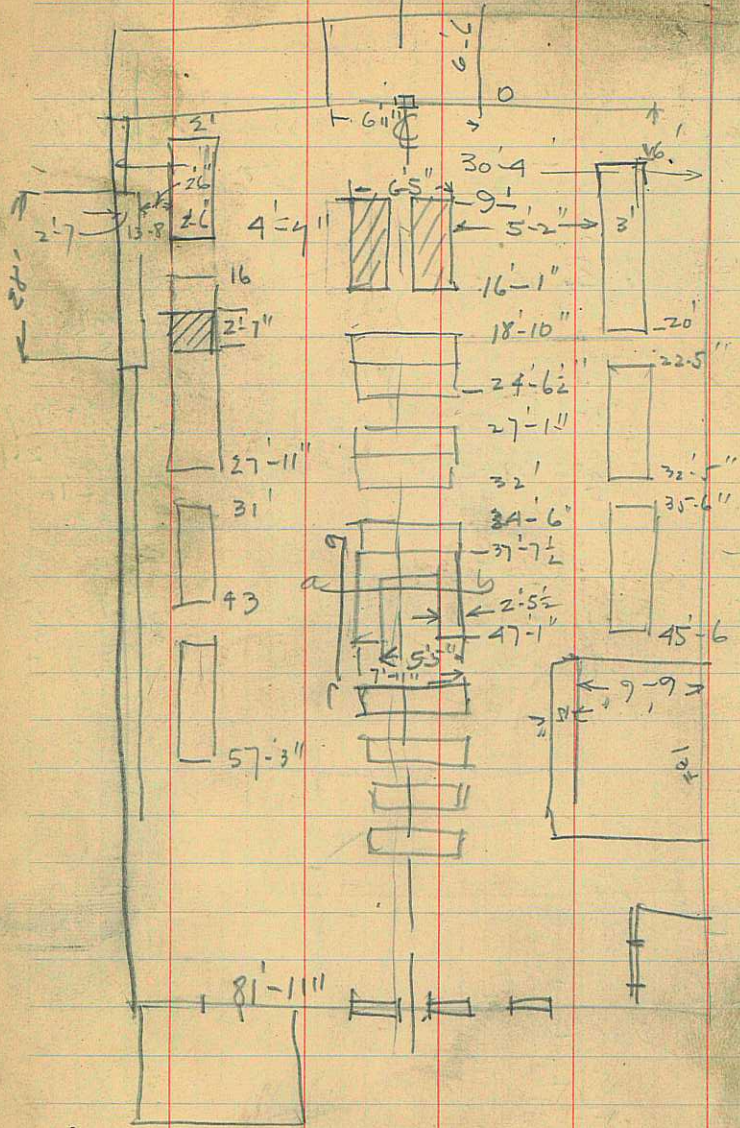 7'-6
0
6'11"
2'
30'-4
6'-5"
9'
2'6"
2'-7
13-8
26'
4'-4"
5'-2"
3'
16
16'-1"
20'
2'-7"
18'-10"
22-5"
24'-6½"
27'-1"
27'-11"
32'
32'-5"
31'
34'-6"
35-6"
37'-7½
a
b
43
2'-5½
47'-1"
45'-6
5'5"
7'-11"
9'-9
57'-3"
81'-11"